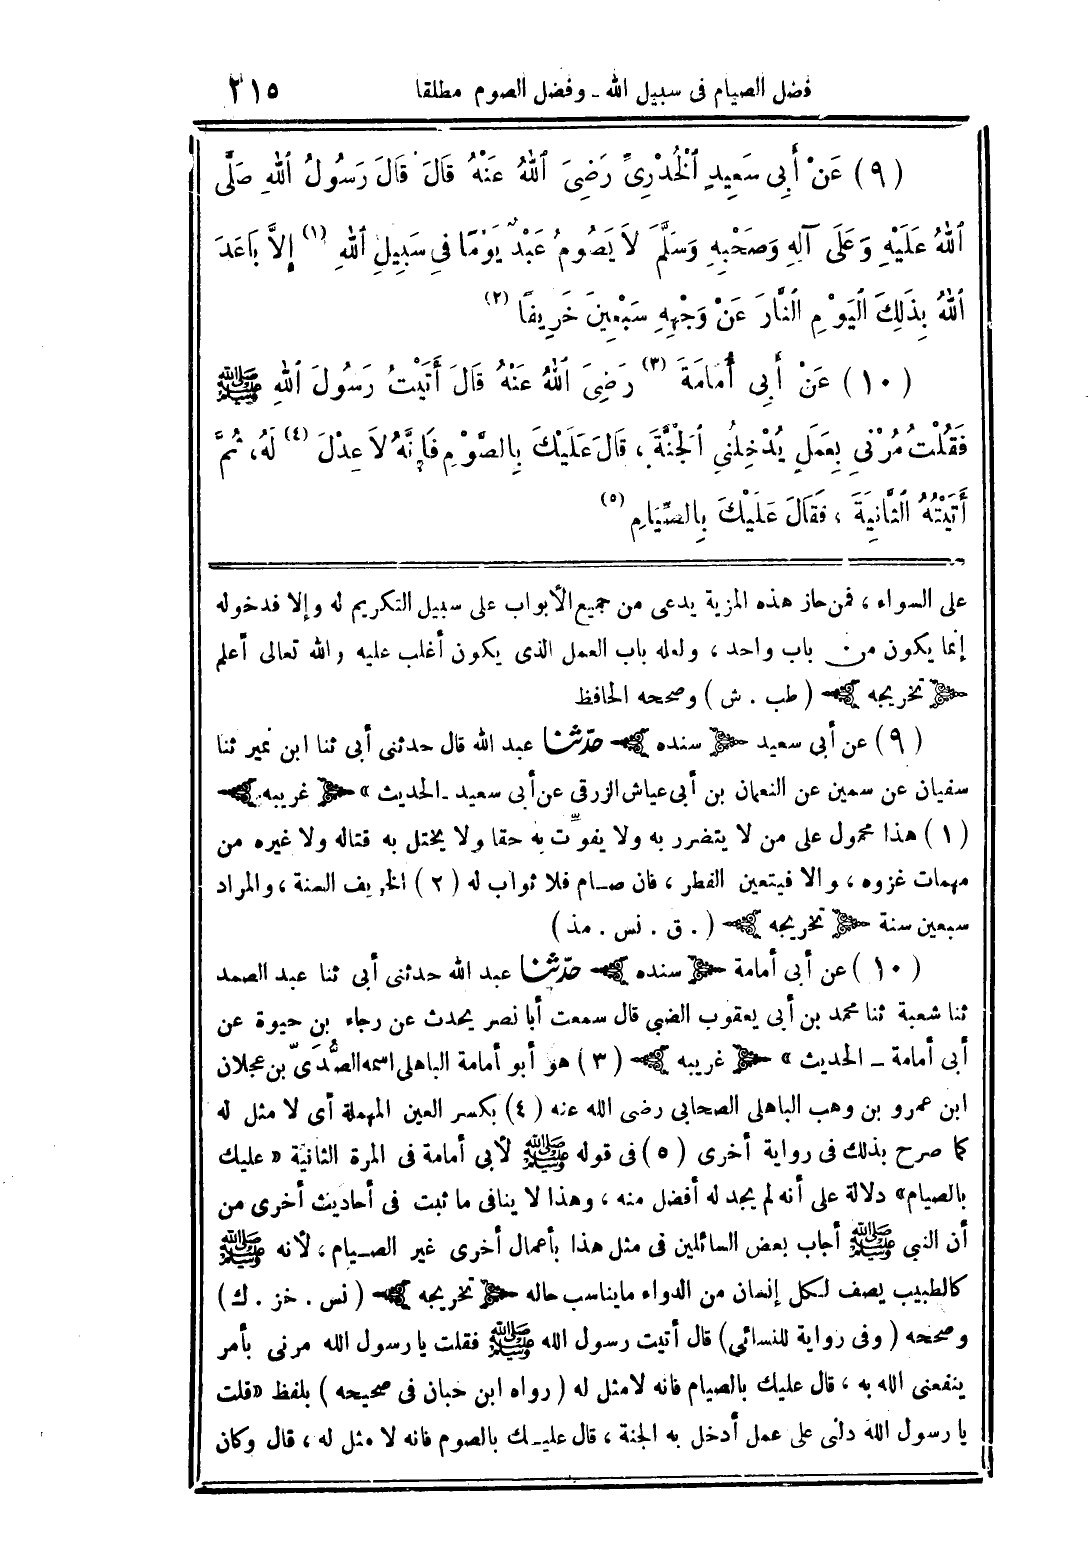 فضل الصيام فى سبيل الله ـ وفضل الصوم مطلقا ٢١٥
(٩) عَنْ أَبِى سَعِيدٍ الْخُدْرِىِّ رَضِىَ اللهُ عَنْهُ قَالَ قَالَ رَسُولُ اللهِ صَلَّى
اللهُ عَلَيْهِ وَعَلَى آلِهِ وَصَحْبِهِ وَسَلَّمَ لَا يَصُومُ عَبْدٌ يَوْمًا فِى سَبِيلِ اللهِ (١) إِلَّا بَاعَدَ
اللهُ بِذَلِكَ الْيَوْمِ النَّارَ عَنْ وَجْهِهِ سَبْعِينَ خَرِيفًا (٢)
(١٠) عَنْ أَبِى أُمَامَةَ (٣) رَضِىَ اللهُ عَنْهُ قَالَ أَتَيْتُ رَسُولَ اللهِ ﷺ
فَقُلْتُ مُرْنِى بِعَمَلٍ يُدْخِلُنِى الْجَنَّةَ، قَالَ عَلَيْكَ بِالصَّوْمِ فَإِنَّهُ لَا عِدْلَ (٤) لَهُ، ثُمَّ
أَتَيْتُهُ الثَّانِيَةَ، فَقَالَ عَلَيْكَ بِالصِّيَامِ (٥)
على السواء، فمن حاز هذه المزية يدعى من جميع الأبواب على سبيل التكريم له وإلا فدخوله
إنما يكون من باب واحد، ولعله باب العمل الذى يكون أغلب عليه والله تعالى أعلم
﴿تخريجه﴾ (طب. ش) وصححه الحافظ
(٩) عن أبى سعيد ﴿سنده﴾ حدّثنا عبد الله قال حدثنى أبى ثنا ابن نمير ثنا
سفيان عن سمين عن النعمان بن أبى عياش الزرقى عن أبى سعيد ـ الحديث» ﴿غريبه﴾
(١) هذا محمول على من لا يتضرر به ولا يفوّت به حقا ولا يختل به قتاله ولا غيره من
مهمات غزوه، والا فيتعين الفطر، فان صـام فلا ثواب له (٢) الخريف السنة، والمراد
سبعين سنة ﴿تخريجه﴾ (. ق. نس. مذ)
(١٠) عن أبى أمامة ﴿سنده﴾ حدّثنا عبد الله حدثنى أبى ثنا عبد الصمد
ثنا شعبة ثنا محمد بن أبى يعقوب الضبى قال سمعت أبا نصر يحدث عن رجاء بن حيوة عن
أبى أمامة ـ الحديث» ﴿غريبه﴾ (٣) هو أبو أمامة الباهلى اسمه الصُّدَىّ بن عجلان
ابن عمرو بن وهب الباهلى الصحابى رضى الله عنه (٤) بكسر العين المهملة أى لا مثل له
كما صرح بذلك فى رواية أخرى (٥) فى قوله ﷺ لأبى أمامة فى المرة الثانية «عليك
بالصيام» دلالة على أنه لم يجد له أفضل منه، وهذا لا ينافى ما ثبت فى أحاديث أخرى من
أن النبي ﷺ أجاب بعض السائلين فى مثل هذا بأعمال أخرى غير الصـيام، لأنه ﷺ
كالطبيب يصف لكل إنسان من الدواء ما يناسب حاله ﴿تخريجه﴾ (نس. خز. ك)
وصححه (وفى رواية للنسائي) قال أتيت رسول الله ﷺ فقلت يا رسول الله مرنى بأمر
ينفعنى الله به، قال عليك بالصيام فانه لا مثل له (رواه ابن حبان فى صحيحه) بلفظ «قلت
يا رسول الله دلنى على عمل أدخل به الجنة، قال عليـك بالصوم فانه لا مثل له، قال وكان